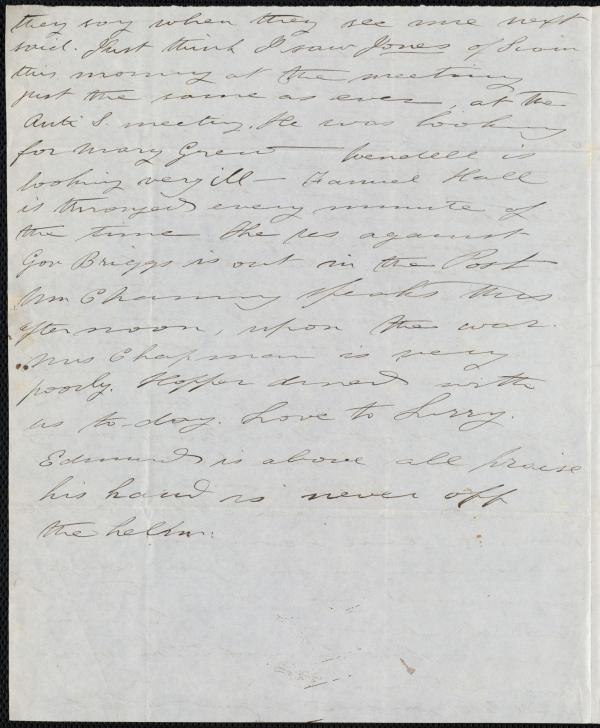 they say when they see me next
said. Just think I saw Jones of
this morning at the meeting
just the same as ever, at the
Anti S. meeting. He was looking
for Mary Grew — Wendell is
looking very ill — Fanuel Hall
is thronged every minute of
the time The res against
Gov Briggs is out in the Post
Wm Channing speaks this
afternoon, upon the war.
Mrs Chapman is very
poorly. Hopper dined with
us to-day. Love to Lizzy.
Edmund is above all praise
his hand is never off
the helm.